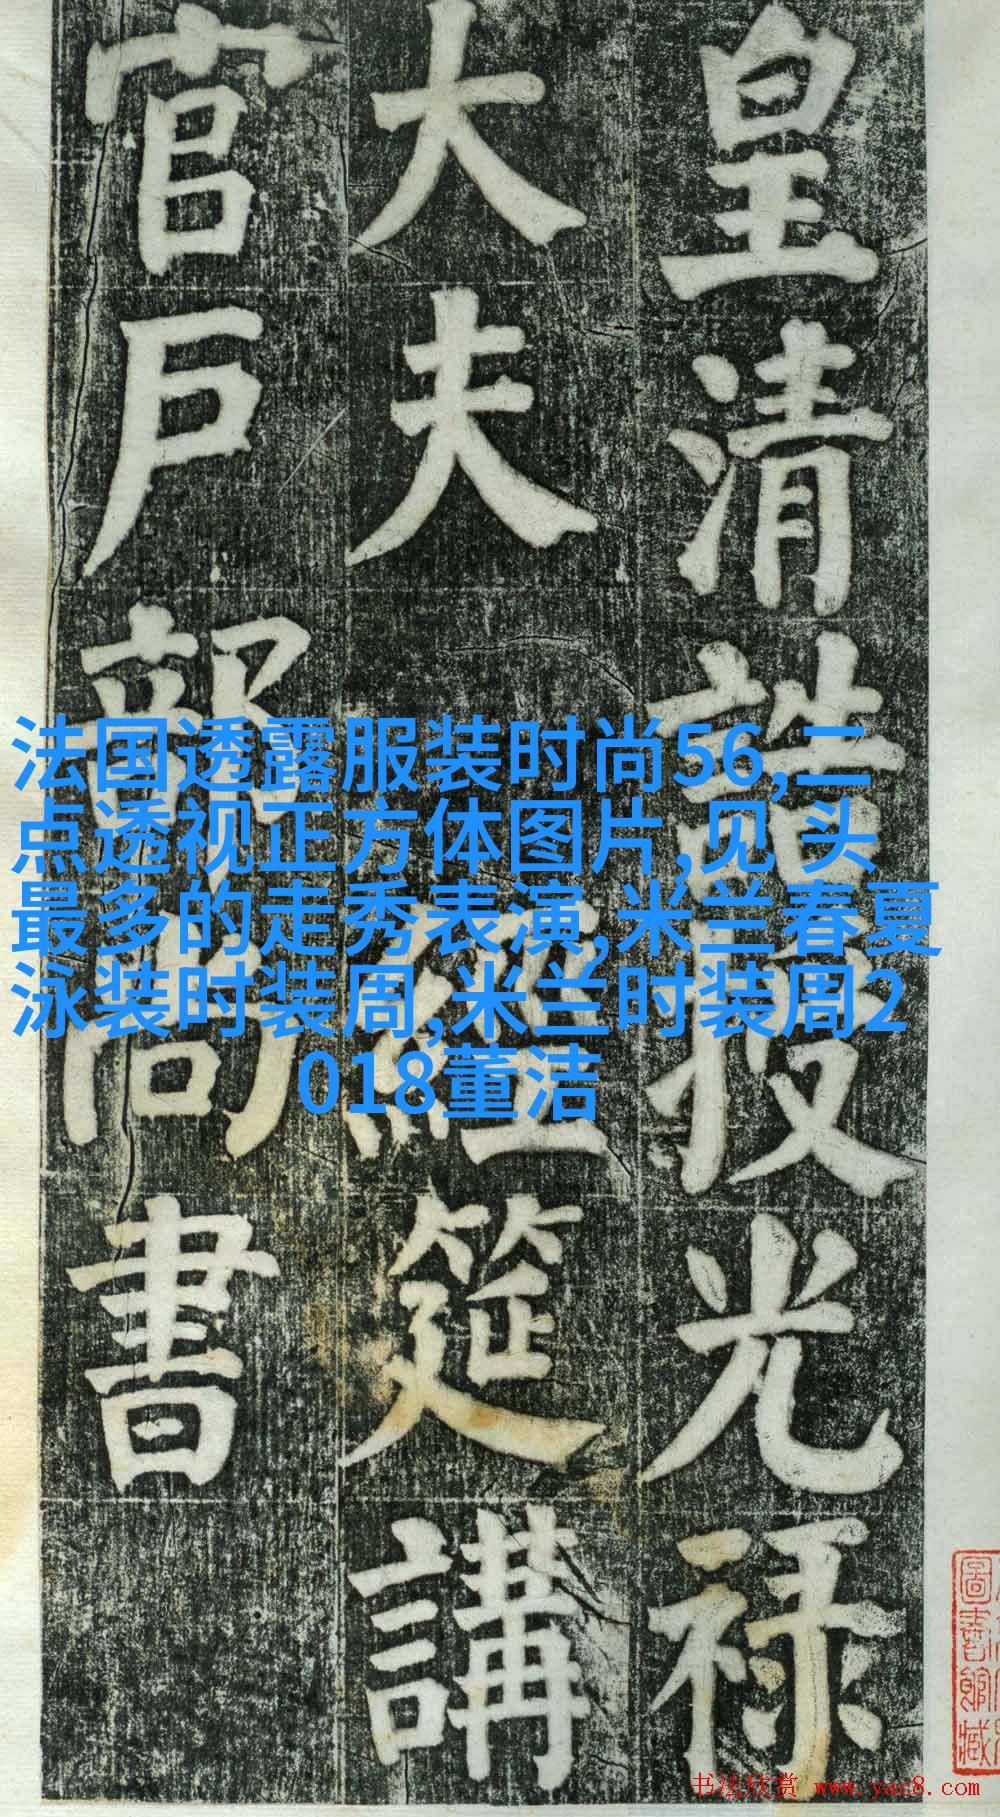 皇清誥授光禄
大夫 經筵講
官戶部尚書
法国透露服装时尚56,二
点透视正方体图片,见 头
最多的走秀表演,米兰春夏
泳装时装周,米兰时装周2
018董洁
圖書館藏
书法欣赏 www.yac8.com